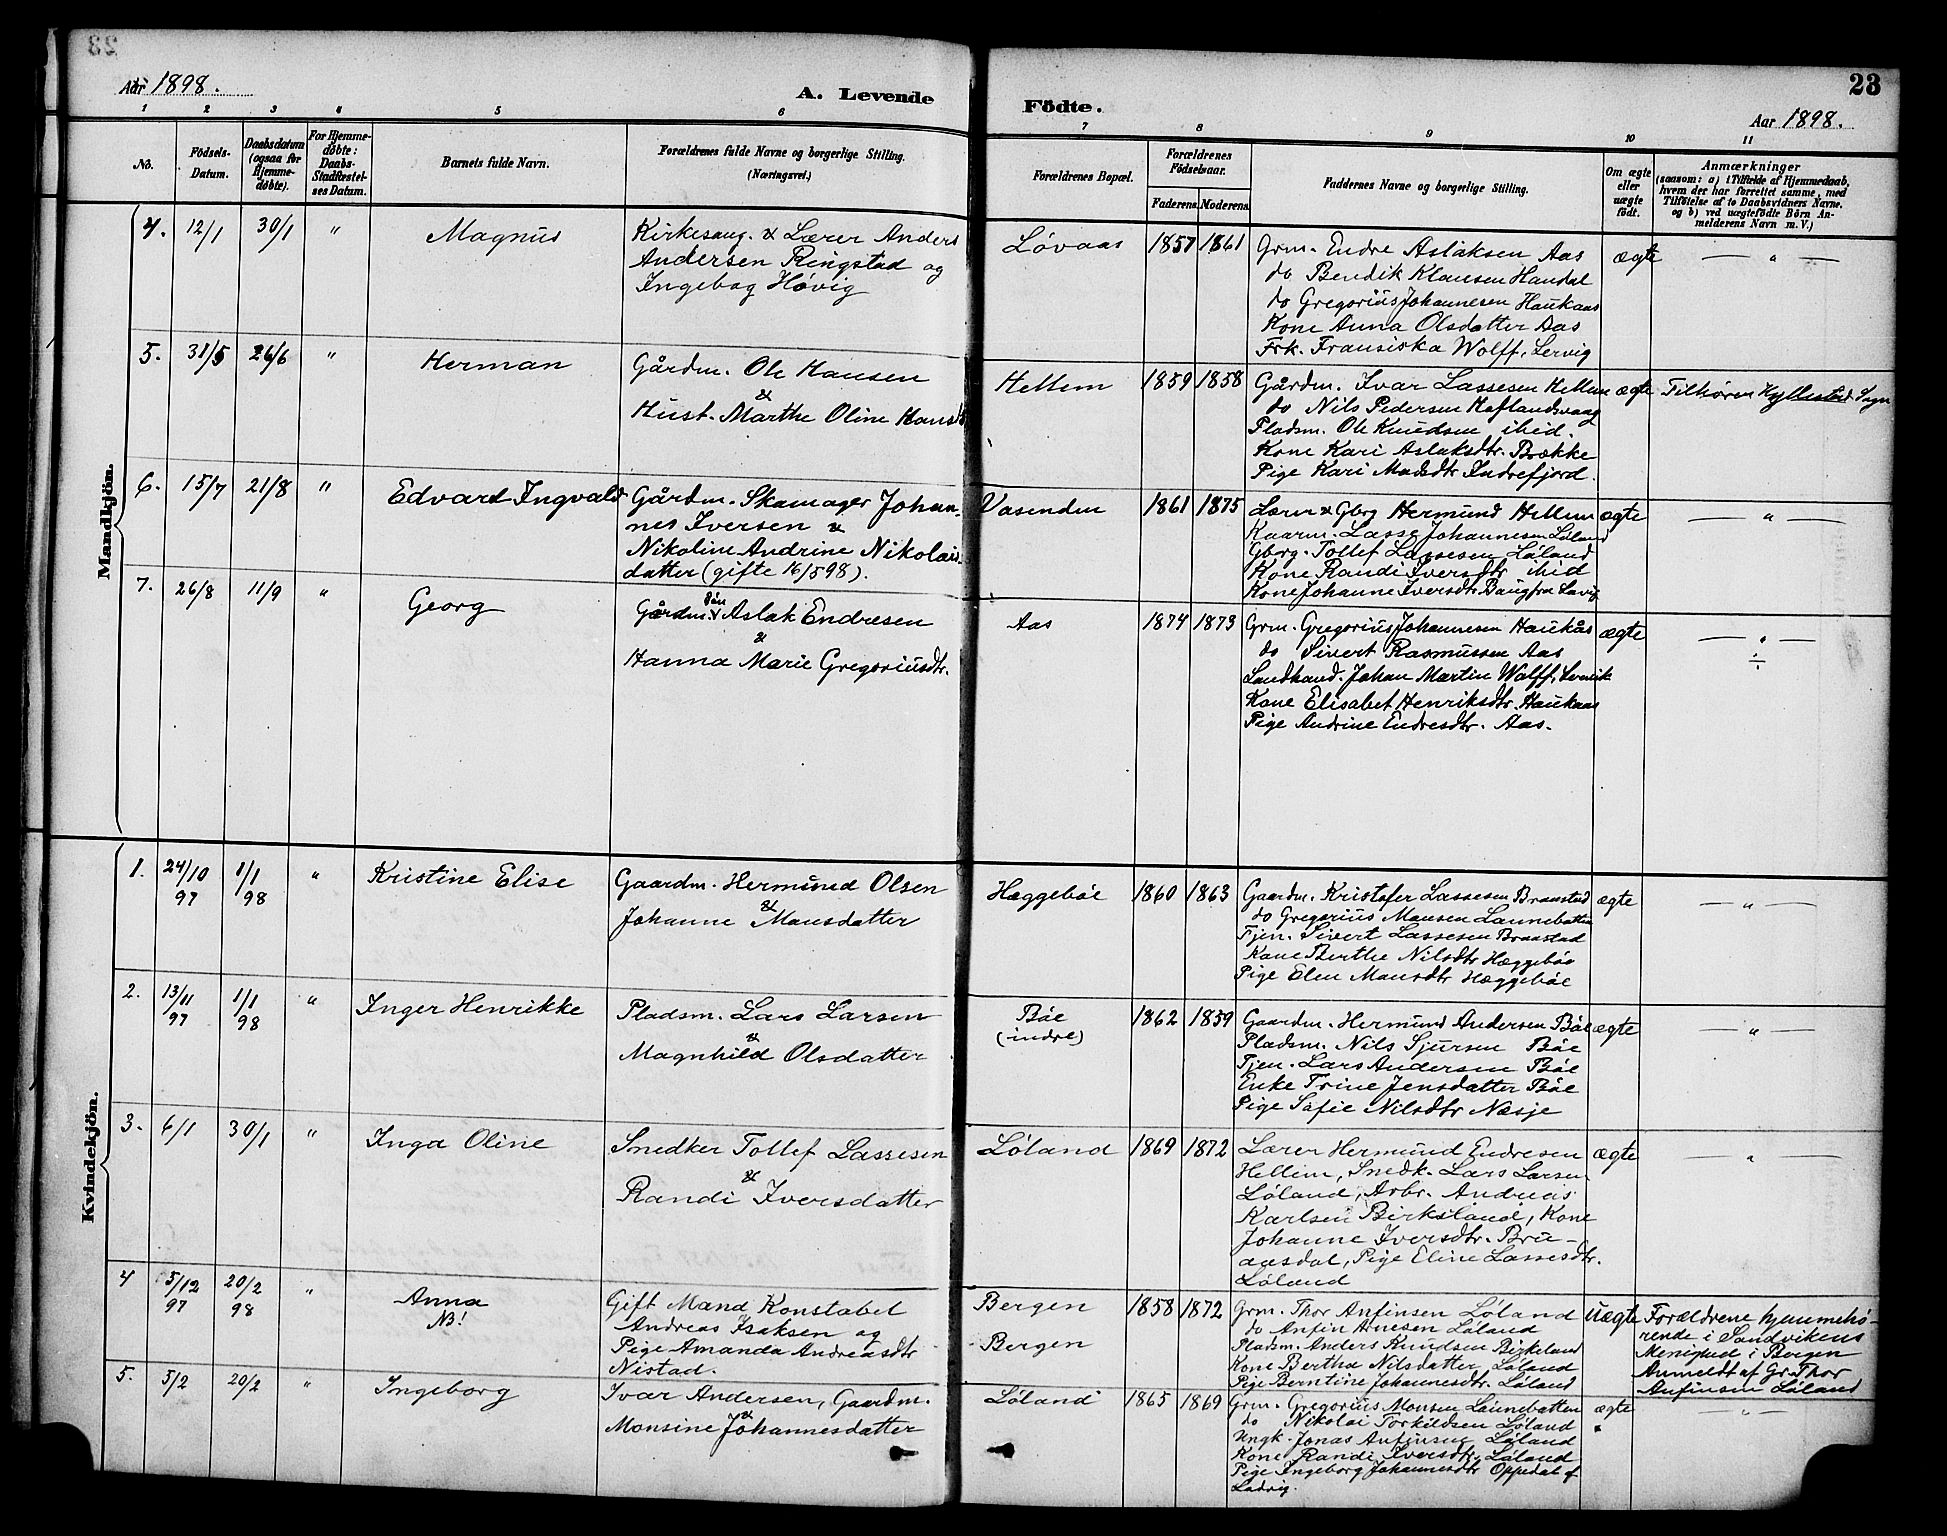 Aar 1898.
A. Levende
Födte.
23
Aar 1898.
1 2 3 4 5 6 7 8 9 10 11
No.
Födsels-Datum.
Daabsdatum (ogsaa for Hjemme-døbte).
For Hjemme-døbte: Daabs-Stadfæstel-ses Datum.
Barnets fulde Navn.
Forældrenes fulde Navne og borgerlige Stilling. (Næringsvei.)
Forældrenes Bopæl.
Forældrenes Födselsaar.
Faderens. Moderens.
Faddernes Navne og borgerlige Stilling.
Om ægte eller uægte født.
Anmærkninger
(saasom: a) i Tilfælde af Hjemmedaab,
hvem der har forrettet samme, med
Tilföielse af to Daabsvidners Navne.
og b) ved uægtefödte Börn An-
melderens Navn m. V.)
Mandkjön.
4. 12/1 30/1 " Magnus
Kirkesang. & Lærer Anders
Andersen Ringstad og
Ingebog Høvig
Løvaas 1857 1861
Grm. Endre Aslaksen Aas
do Bendik Klausen Haudal
do Gregorius Johannesen Haukaas
Kone Anna Olsdatter Aas
Frk. Fransiska Wolff, Lervig
ægte — " —
5. 31/5 26/6 " Herman
Gårdm. Ole Hansen
&
Hust. Marthe Oline Hansd
Hellem 1859 1858
Gårdm. Ivar Lassesen Hellem
do Nils Pedersen Haflandsvaag
Pladsm. Ole Knudsen ibid.
Kone Kari Aslaksdtr. Brække
Pige Kari Madsdtr Indrefjord.
ægte Tilhører Hyllestad Sogn
6. 15/7 21/8 " Edvard Ingvald
Gårdm. Skomager Johan-
nes Iversen &
Nikoline Andrine Nikolais-
datter (gifte 16/5 98).
Vasenden 1861 1875
Lærer & Gbrg Hermund Hellem
Kaarm. Lasse Johannesen Løland
Gbrg. Tollef Lassesen Løland
Kone Randi Iversdtr ibid
Kone Johanne Iversdtr. Bang fra Lavig
ægte — " —
7. 26/8 11/9 " Georg
Gårdm. Søn Aslak Endresen
&
Hanna Marie Gregoriusdtr.
Aas 1874 1873
Grm. Gregorius Johannesen Haukås
do Sivert Rasmussen Aas
Landhand. Johan Martin Wolff, Lervik
Kone Elisabet Henriksdtr. Haukaas
Pige Andrine Endresdtr. Aas.
ægte — " —
÷
Kvindekjön.
1. 24/10 97 1/1 98 " Kristine Elise
Gaardm. Hermund Olsen
&
Johanne Mansdatter
Hæggebøe 1860 1863
Gaardm. Kristofer Lassesen Braastad
do Gregorius Mansen Launebotten
Tjen. Sivert Lassesen Braastad
Kone Berthe Nilsdtr Hæggebøe
Pige Elen Mansdtr Hæggebøe
ægte — " —
2. 13/11 97 1/1 98 " Inger Henrikke
Pladsm. Lars Larsen
&
Magnhild Olsdatter
Bøe
(indre)
1862 1859
Gaardm. Hermund Andersen Bøe
Pladsm. Nils Sjursen Bøe
Tjen. Lars Andersen Bøe
Enke Trine Jensdatter Bøe
Pige Sofie Nilsdtr Næsje
ægte — " —
3. 6/1 30/1 " Inga Oline
Snedker Tollef Lassesen
&
Randi Iversdatter
Løland 1869 1872
Lærer Hermund Endresen
Hellem, Snedk. Lars Larsen
Løland, Arbr. Andreas
Karlsen Birkeland, Kone
Johanne Iversdtr. Bru-
aasdal, Pige Eline Lassesdtr.
Løland
ægte — " —
4 5/12 97 20/2 98 " Anna
NB!
Gift Mand Konstabel
Andreas Isaksen og
Pige Amanda Andreasdtr
Nistad.
Bergen
Bergen
1858 1872
Grm. Thor Anfinsen Løland
do Anfin Arnesen Løland
Pladsm. Anders Knudsen Birkeland
Kone Bertha Nilsdatter Løland
Pige Berntine Johannesdtr. Løland
Uægte
Forældrene hjemmehø-
rende i Sandvikens
Menighed i Bergen
Anmeldt af Gr. Thor
Anfinsen Løland
5. 5/2 20/2 " Ingeborg
Ivar Andersen, Gaardm.
&
Monsine Johannesdatter
Løland 1865 1869
Grm. Gregorius Monsen Launebotten
do Nikolai Torkildsen Løland
Ungk. Jonas Anfinsen Løland
Kone Randi Iversdtr. Løland
Pige Ingeborg Johannesdtr Oppedal f
Ladvig.
ægte — " —